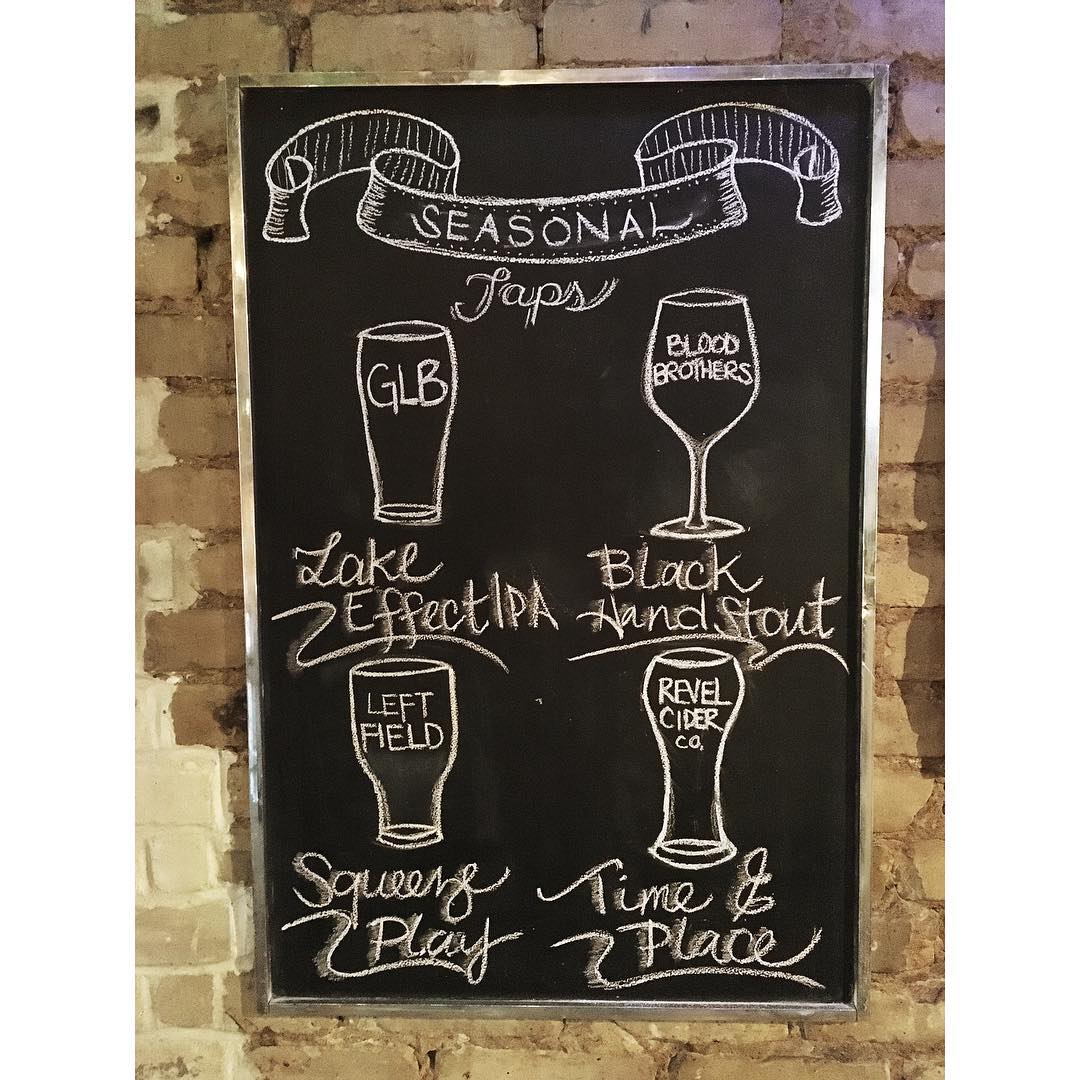 SEASONAL
Taps
GLB
Lake
Effect IPA
BLOOD
BROTHERS
Black
Hand Stout
LEFT
FIELD
Squeeze
Play
REVEL
CIDER
CO.
Time &
Place